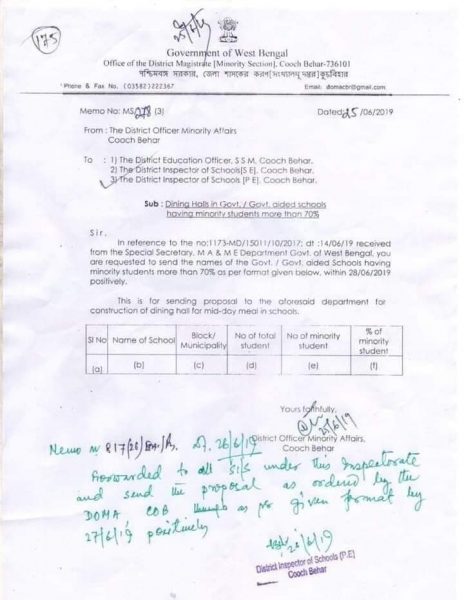 175
Government of West Bengal
Office of the District Magistrate [Minority Section], Cooch Behar-736101
পশ্চিমবঙ্গ সরকার, জেলা শাসকের করণ[সংখ্যালঘু দপ্তর]কুচবিহার
Phone & Fax No. (03582)222367 Email: domacbr@gmail.com
Memo No: MS/278 (3) Dated:25/06/2019
From : The District Officer Minority Affairs
Cooch Behar
To : 1) The District Education Officer, S S M, Cooch Behar.
2) The District Inspector of Schools[S E], Cooch Behar.
3) The District Inspector of Schools [P E], Cooch Behar.
Sub : Dining Halls in Govt. / Govt. aided schools
having minority students more than 70%
Sir,
In reference to the no:1173-MD/15011/10/2017; dt :14/06/19 received
from the Special Secretary, M A & M E Department Govt. of West Bengal, you
are requested to send the names of the Govt. / Govt. aided Schools having
minority students more than 70% as per format given below, within 28/06/2019
positively.
This is for sending proposal to the aforesaid department for
construction of dining hall for mid-day meal in schools.
Sl No Name of School Block/ Municipality No of total student No of minority student % of minority student
(a) (b) (c) (d) (e) (f)
Yours faithfully,
25/6/19
District Officer Minority Affairs,
Cooch Behar
Memo no 817(28) 26/6/19
Forwarded to all SI/S under this Inspectorate
and send the proposal as ordered by the
DOMA COB as per given format by
27/6/19 positively
26/6/19
District Inspector of Schools (P.E)
Cooch Behar